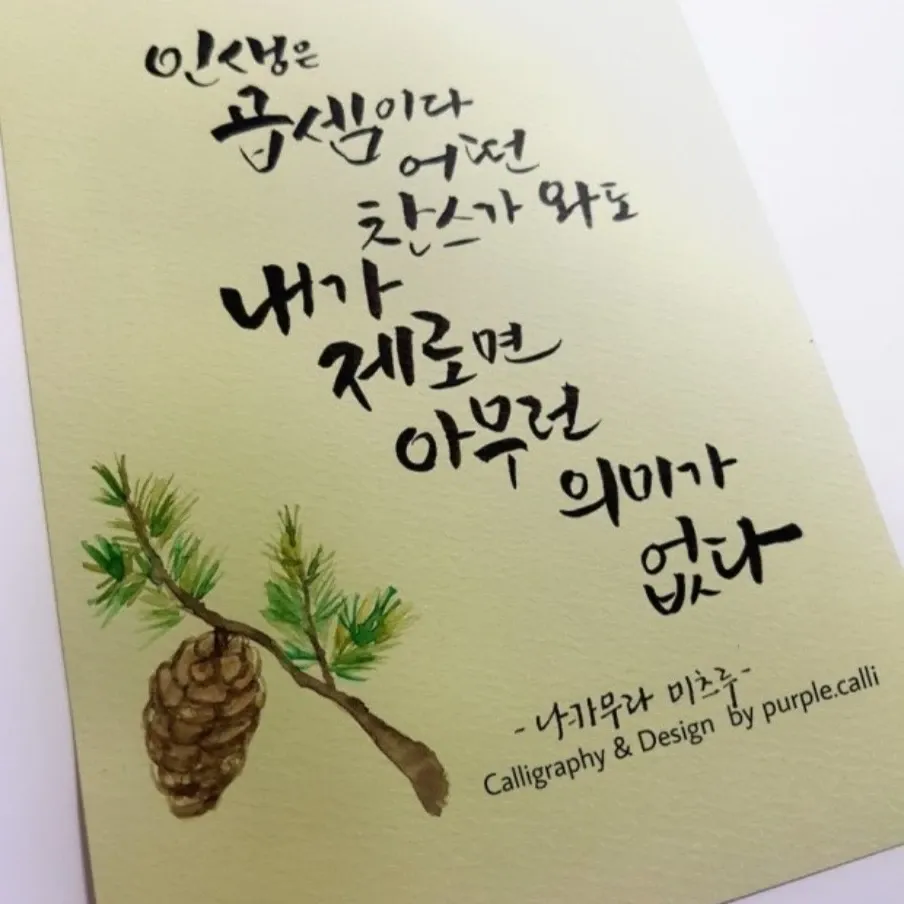 인생은
곱셈이다
어떤
찬스가 와도
내가
제로면
아무런
의미가
없다
- 나카무라 미츠루 -
Calligraphy & Design by purple.calli